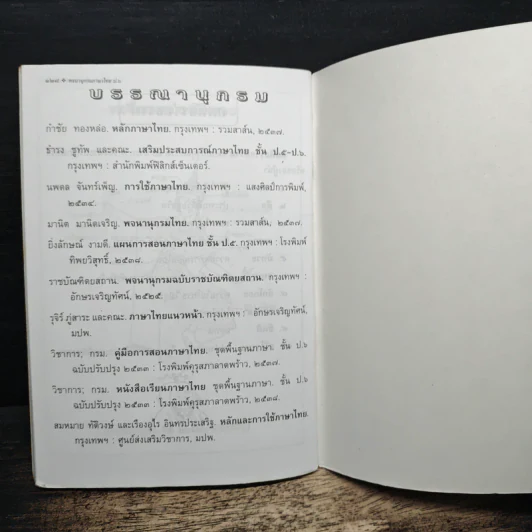 ๑๒๘ ❖ พจนานุกรมภาษาไทย ป.๖
บรรณานุกรม
กำชัย ทองหล่อ. หลักภาษาไทย. กรุงเทพฯ : รวมสาส์น, ๒๕๓๗.
ธำรง ชูทัพ และคณะ. เสริมประสบการณ์ภาษาไทย ชั้น ป.๕-ป.๖.
กรุงเทพฯ : สำนักพิมพ์ฟิสิกส์เซ็นเตอร์.
นพดล จันทร์เพ็ญ. การใช้ภาษาไทย. กรุงเทพฯ : แสงศิลป์การพิมพ์,
๒๕๓๔.
มานิต มานิตเจริญ. พจนานุกรมไทย. กรุงเทพฯ : รวมสาส์น, ๒๕๓๗.
ยิ่งลักษณ์ งามดี. แผนการสอนภาษาไทย ชั้น ป.๕. กรุงเทพฯ : โรงพิมพ์
ทิพยวิสุทธิ์, ๒๕๓๘.
ราชบัณฑิตยสถาน. พจนานุกรมฉบับราชบัณฑิตยสถาน. กรุงเทพฯ :
อักษรเจริญทัศน์, ๒๕๒๕.
รุจิร์ ภู่สาระ และคณะ. ภาษาไทยแนวหน้า. กรุงเทพฯ : อักษรเจริญทัศน์,
มปพ.
วิชาการ; กรม. คู่มือการสอนภาษาไทย. ชุดพื้นฐานภาษา. ชั้น ป.๖
ฉบับปรับปรุง ๒๕๓๓ : โรงพิมพ์คุรุสภาลาดพร้าว, ๒๕๓๗.
วิชาการ; กรม. หนังสือเรียนภาษาไทย ชุดพื้นฐานภาษา. ชั้น ป.๖
ฉบับปรับปรุง ๒๕๓๓ : โรงพิมพ์คุรุสภาลาดพร้าว, ๒๕๓๘.
สมหมาย ทัดิวงษ์ และเรืองอุไร อินทรประเสริฐ. หลักและการใช้ภาษาไทย.
กรุงเทพฯ : ศูนย์ส่งเสริมวิชาการ, มปพ.